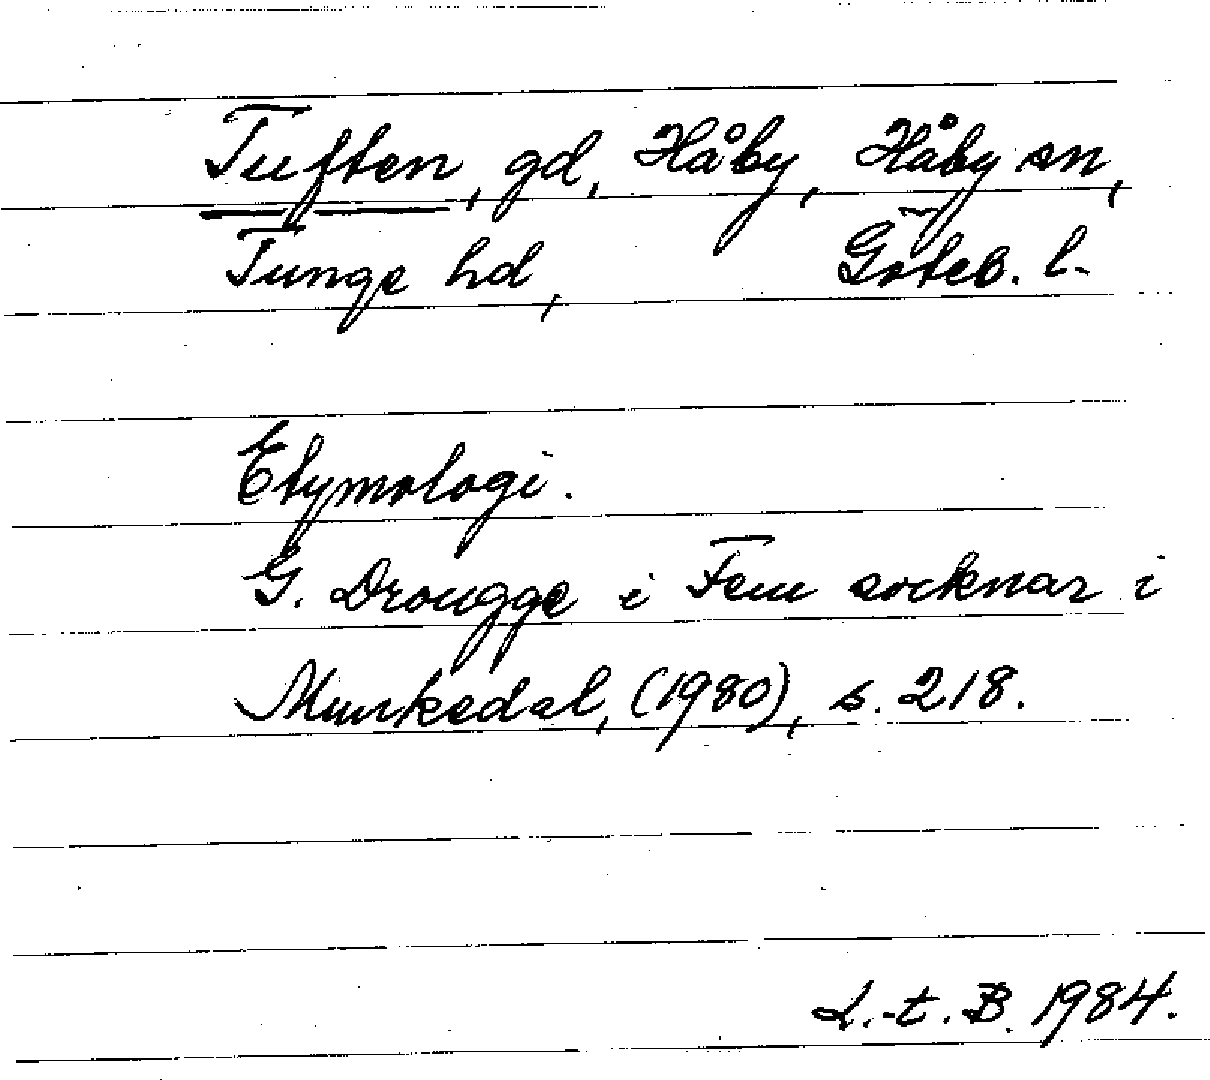 Tuften, gd, Håby, Håby sn,
Tunge hd, Göteb. l.
Etymologi.
G. Drougge i Fem socknar i
Munkedal, (1980), s. 218.
L.-t. B. 1984.